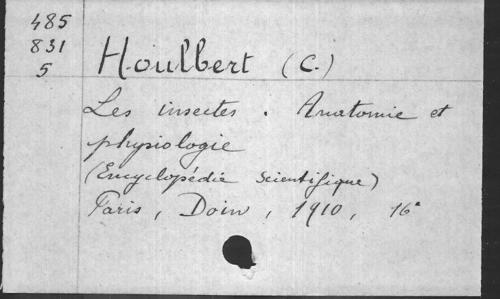 485
831
5
Houlbert (C.)
Les insectes. Anatomie et
physiologie
(Encyclopédie scientifique)
Paris, Doin, 1910, 16°